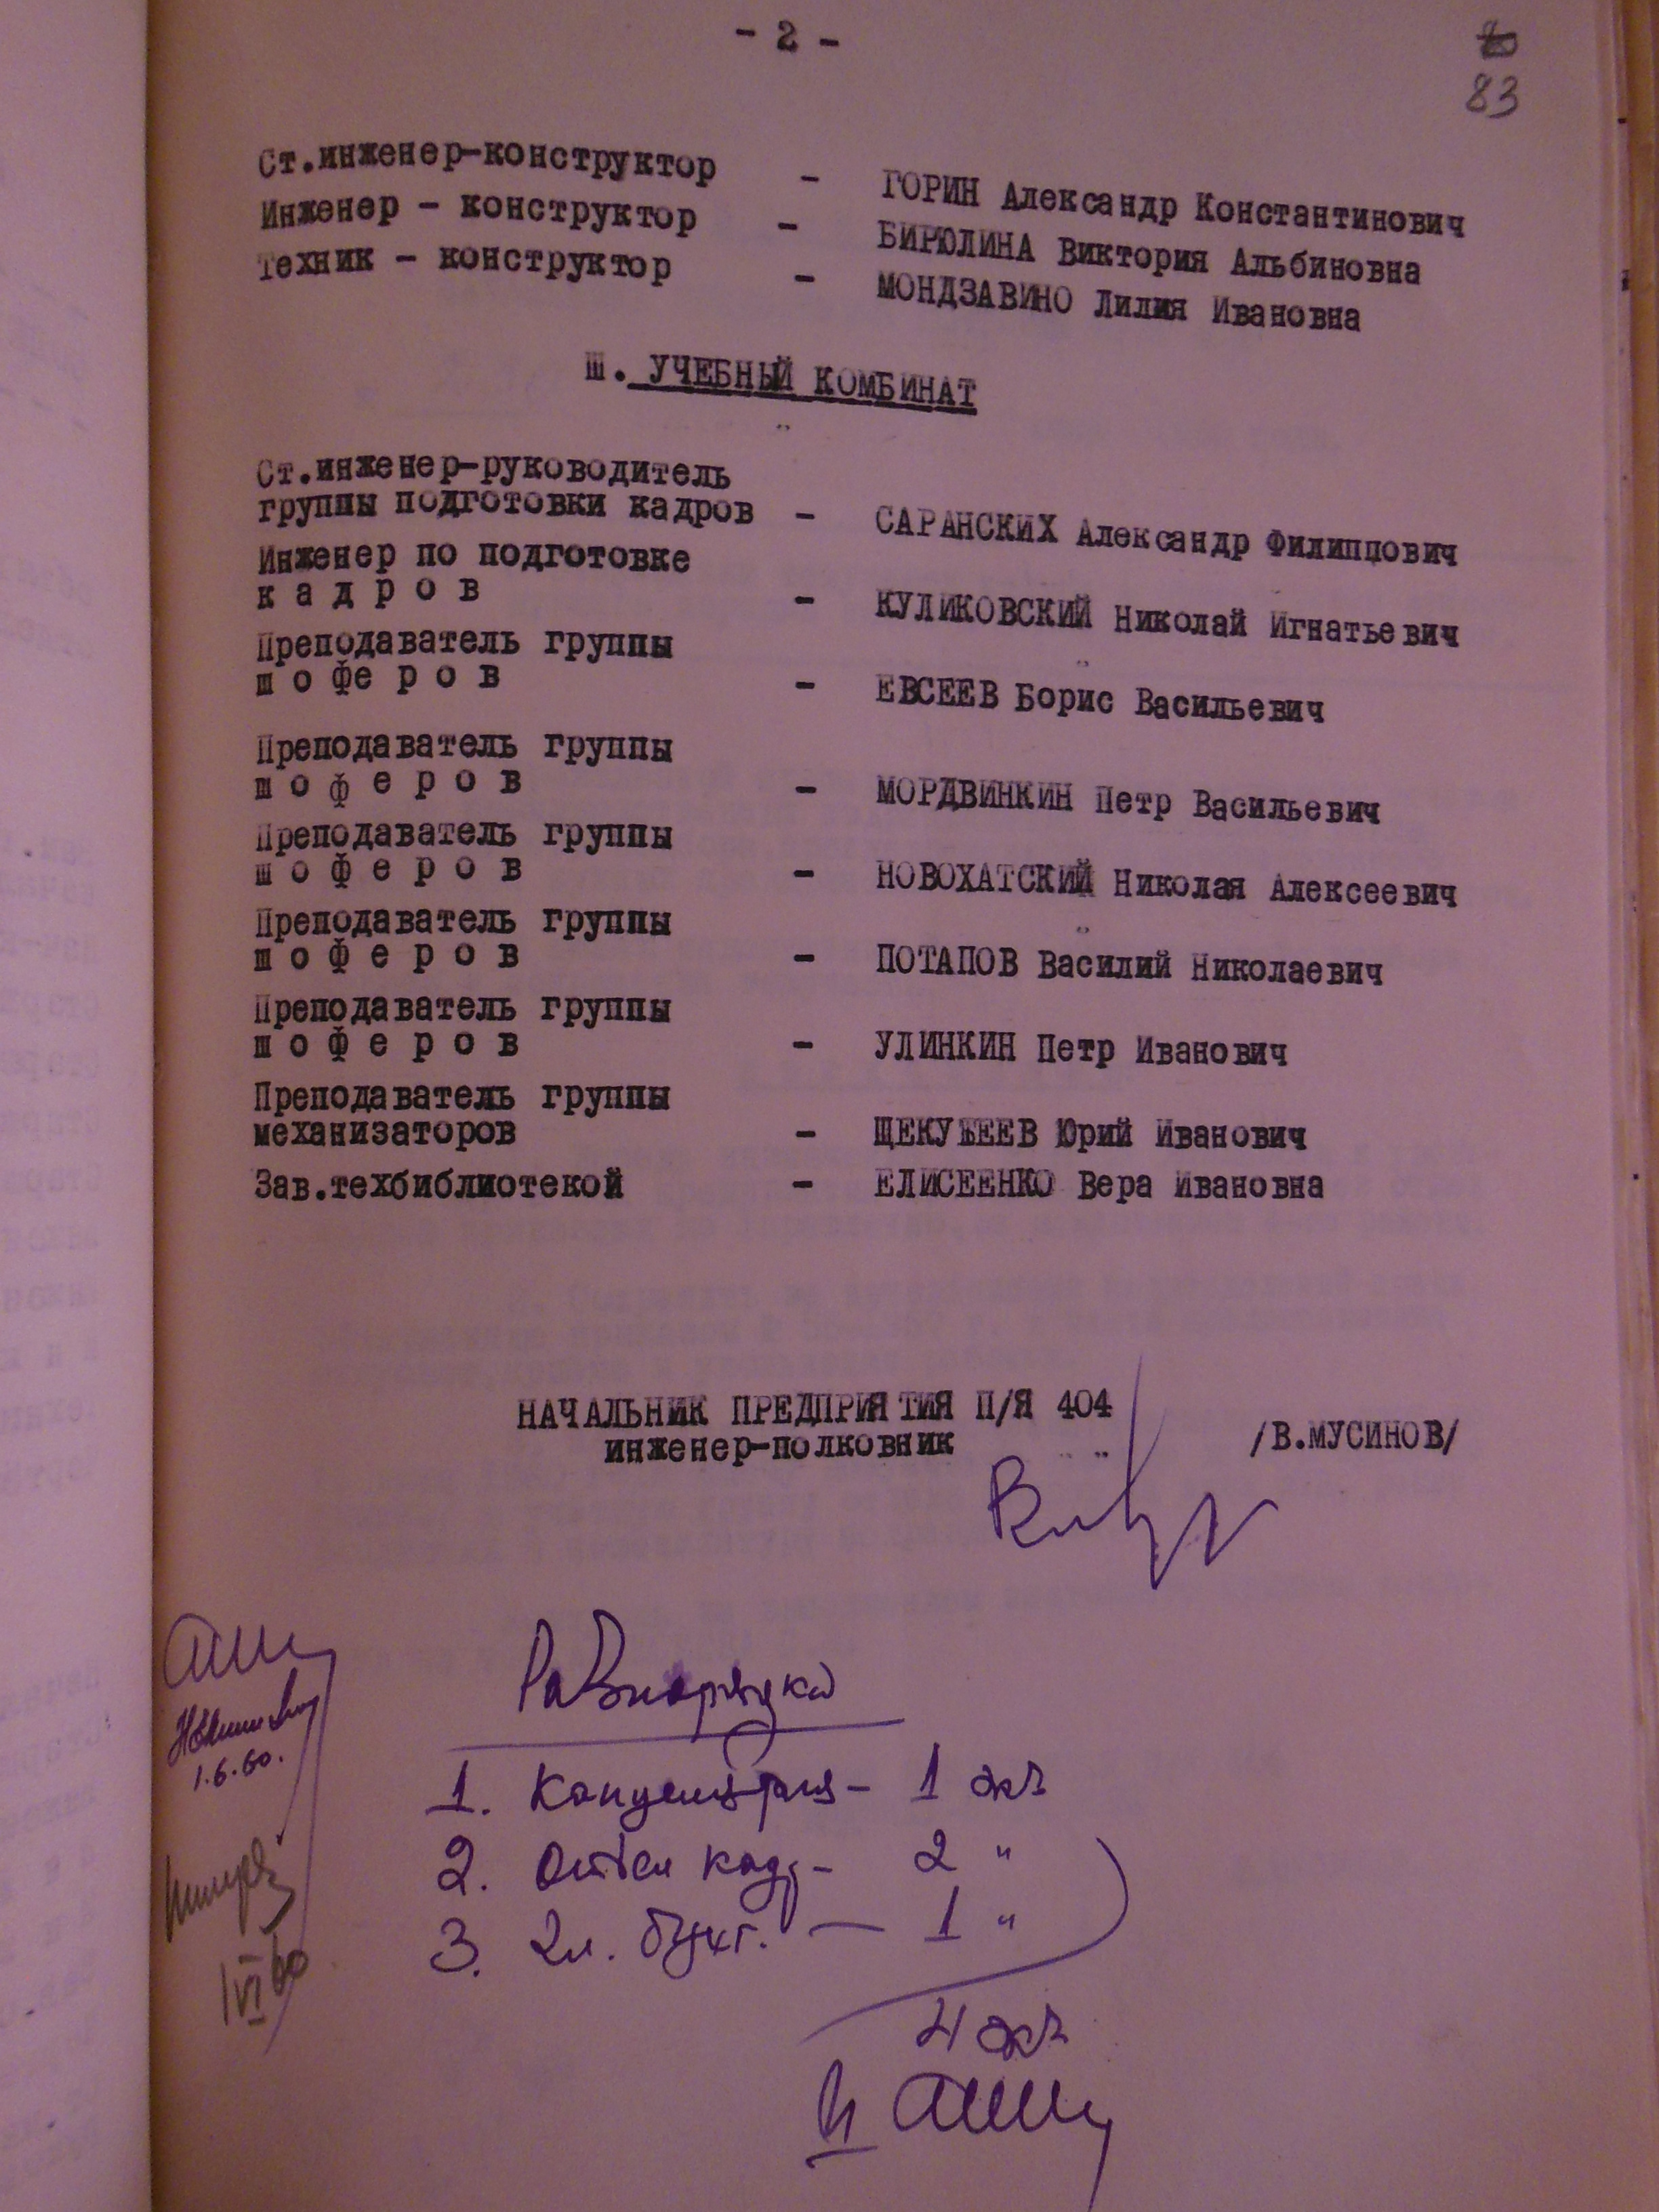 - 2 -
83
Ст.инженер-конструктор - ГОРИН Александр Константинович
Инженер - конструктор - БИРЮЛИНА Виктория Альбиновна
Техник - конструктор - МОНДЗАВИНО Лилия Ивановна
Ш. УЧЕБНЫЙ КОМБИНАТ
Ст.инженер-руководитель
группы подготовки кадров - САРАНСКИХ Александр Филиппович
Инженер по подготовке
к а д р о в - КУЛИКОВСКИЙ Николай Игнатьевич
Преподаватель группы
ш о ф е р о в - ЕВСЕЕВ Борис Васильевич
Преподаватель группы
ш о ф е р о в - МОРДВИНКИН Петр Васильевич
Преподаватель группы
ш о ф е р о в - НОВОХАТСКИЙ Николая Алексеевич
Преподаватель группы
ш о ф е р о в - ПОТАПОВ Василий Николаевич
Преподаватель группы
ш о ф е р о в - УЛИНКИН Петр Иванович
Преподаватель группы
механизаторов - Юрий Иванович
Зав.техбиблиотекой - ЕЛИСЕЕНКО Вера Ивановна
НАЧАЛЬНИК ПРЕДПРИЯТИЯ П/Я 404
инженер-полковник /В.МУСИНОВ/
1.6.60.
1 VI 60
1. Канцелярия - 1 экз
2. Отдел кадр - 2 "
3. Гл. бухг. - 1 "
4 экз